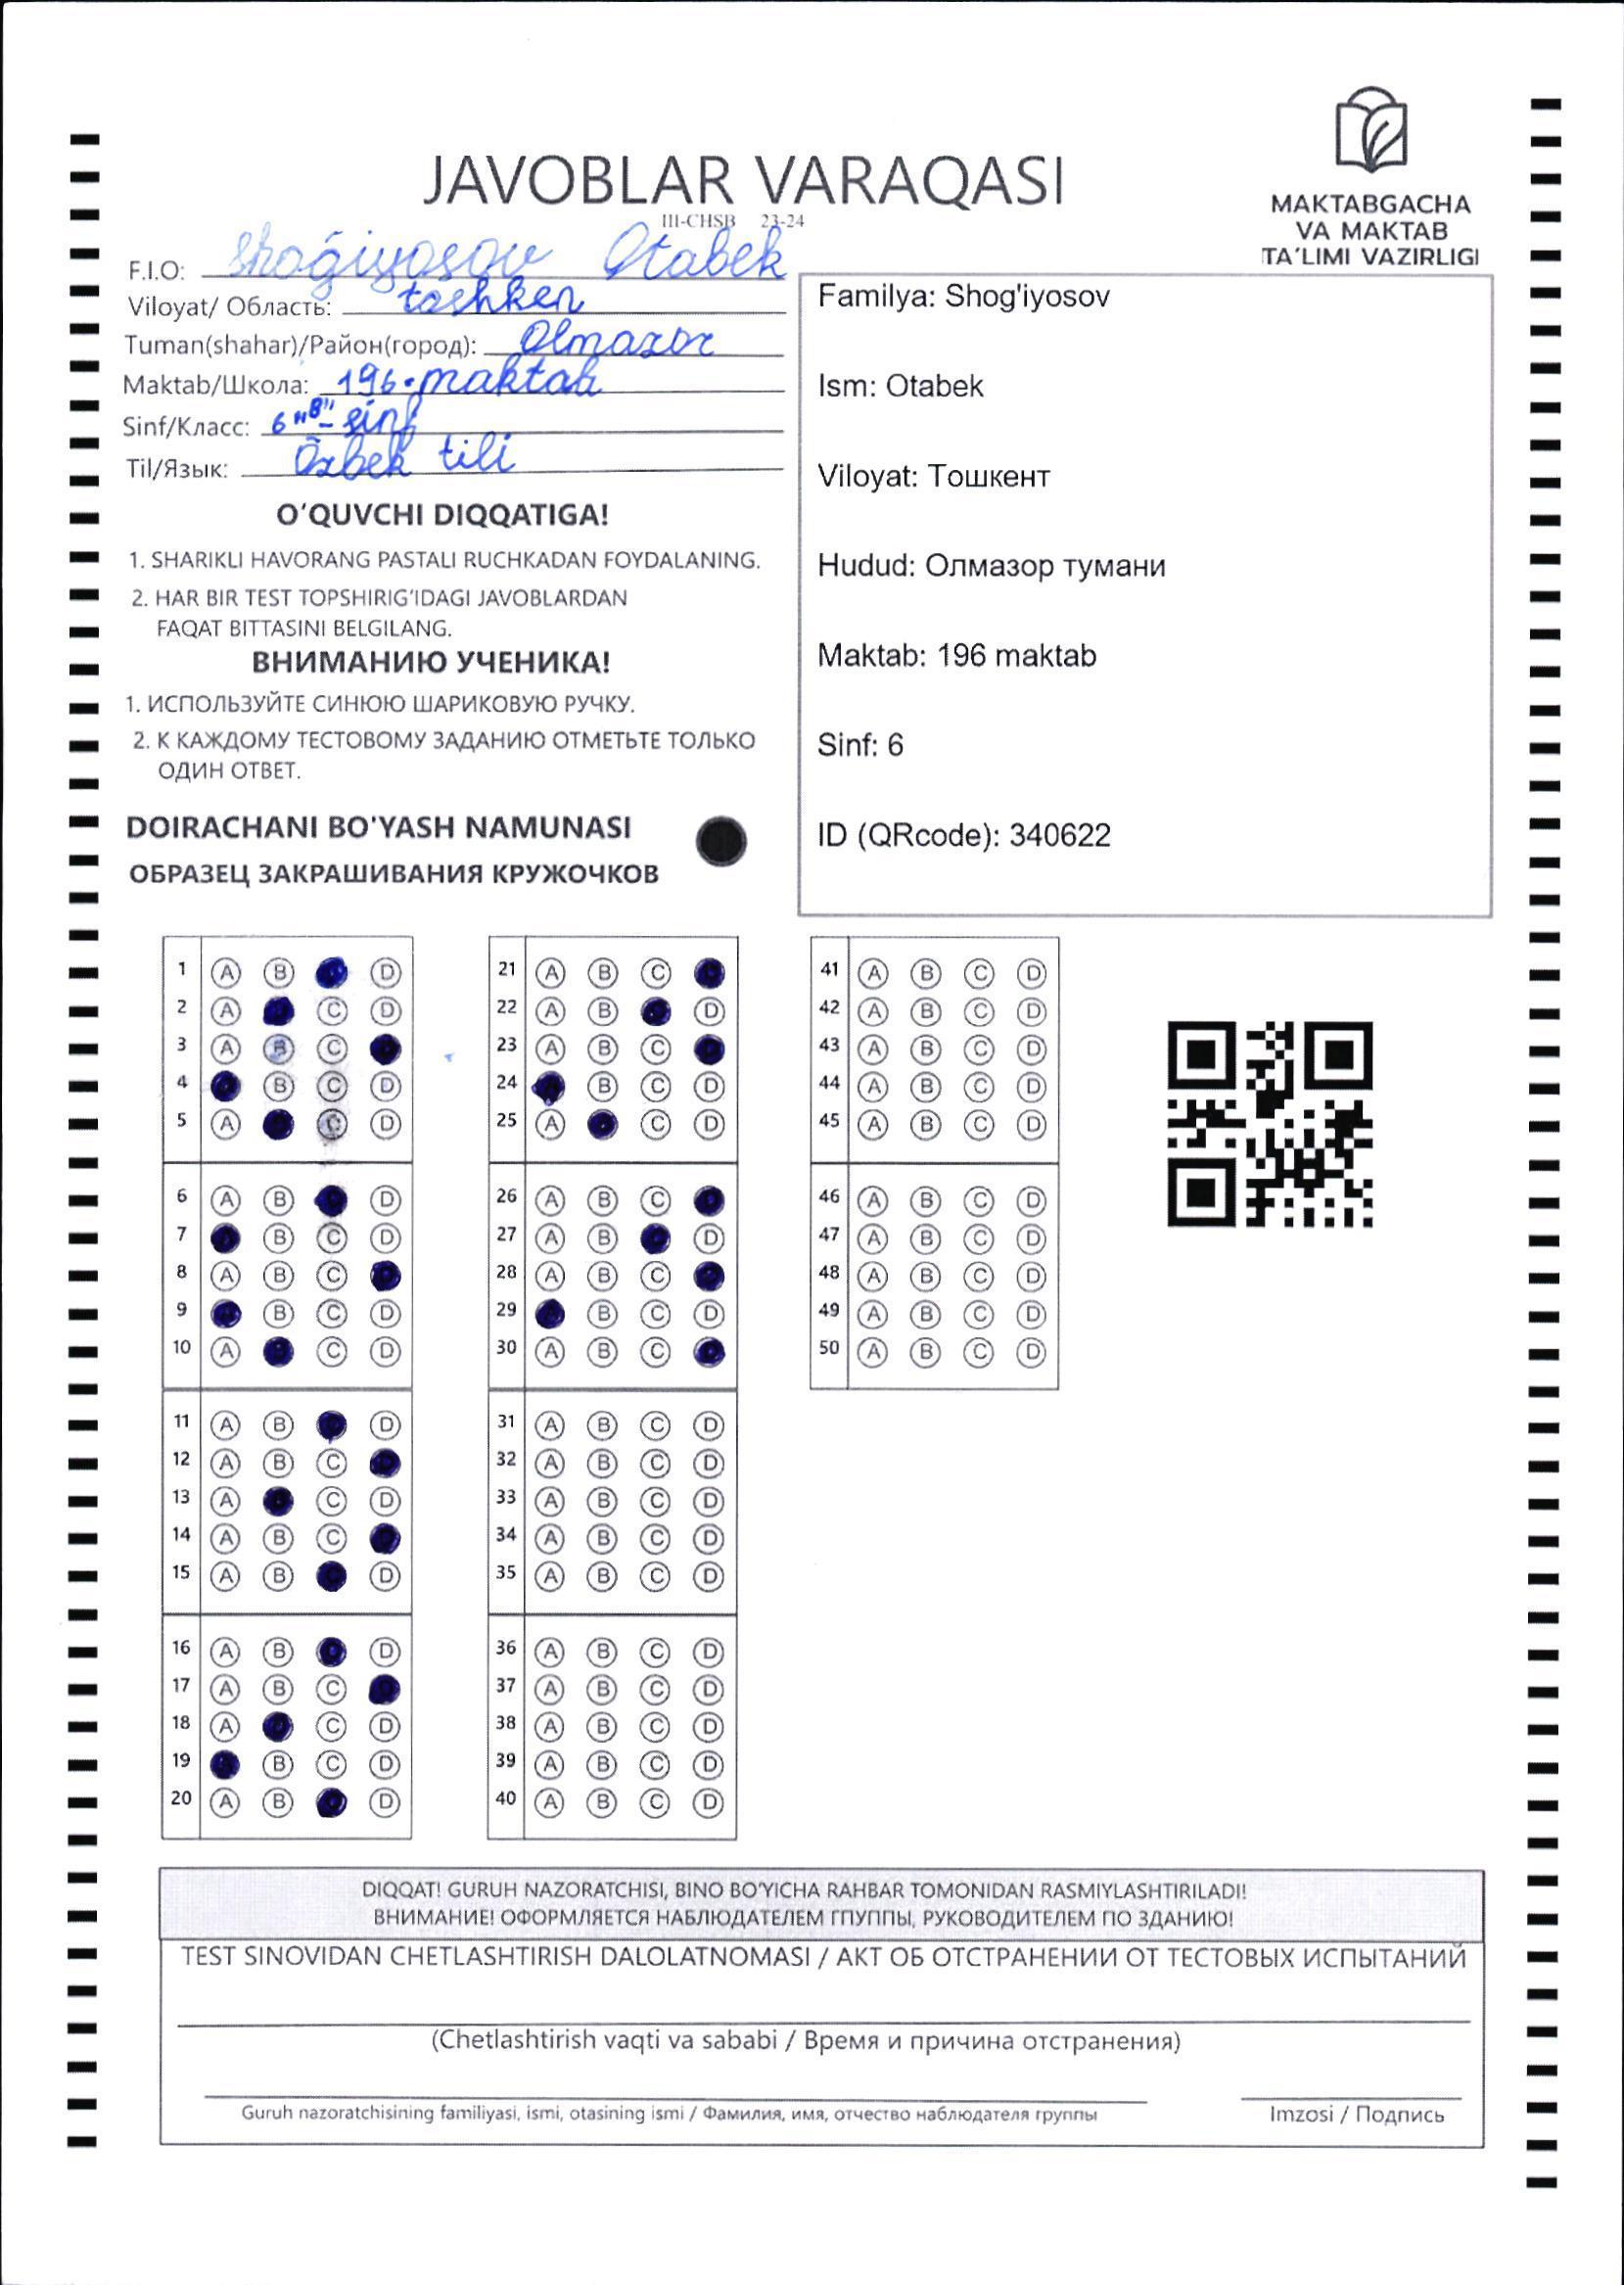 JAVOBLAR VARAQASI
III-CHSB 23-24
MAKTABGACHA
VA MAKTAB
TA'LIMI VAZIRLIGI
F.I.O: Shog'iyosov Otabek
Viloyat/ Область: toshken
Tuman(shahar)/Район(город): Olmazor
Maktab/Школа: 196-maktab
Sinf/Класс: 6 "B" - sinf
Til/Язык: Özbek tili
O'QUVCHI DIQQATIGA!
1. SHARIKLI HAVORANG PASTALI RUCHKADAN FOYDALANING.
2. HAR BIR TEST TOPSHIRIG'IDAGI JAVOBLARDAN
FAQAT BITTASINI BELGILANG.
ВНИМАНИЮ УЧЕНИКА!
1. ИСПОЛЬЗУЙТЕ СИНЮЮ ШАРИКОВУЮ РУЧКУ.
2. К КАЖДОМУ ТЕСТОВОМУ ЗАДАНИЮ ОТМЕТЬТЕ ТОЛЬКО
ОДИН ОТВЕТ.
DOIRACHANI BO'YASH NAMUNASI
ОБРАЗЕЦ ЗАКРАШИВАНИЯ КРУЖОЧКОВ
Familya: Shog'iyosov
Ism: Otabek
Viloyat: Тошкент
Hudud: Олмазор тумани
Maktab: 196 maktab
Sinf: 6
ID (QRcode): 340622
1 A B D
2 A C D
3 A B C
4 B C D
5 A C D
6 A B D
7 B C D
8 A B C
9 B C D
10 A C D
11 A B D
12 A B C
13 A C D
14 A B C
15 A B D
16 A B D
17 A B C
18 A C D
19 B C D
20 A B D
21 A B C
22 A B D
23 A B C
24 B C D
25 A C D
26 A B C
27 A B D
28 A B C
29 B C D
30 A B C
31 A B C D
32 A B C D
33 A B C D
34 A B C D
35 A B C D
36 A B C D
37 A B C D
38 A B C D
39 A B C D
40 A B C D
41 A B C D
42 A B C D
43 A B C D
44 A B C D
45 A B C D
46 A B C D
47 A B C D
48 A B C D
49 A B C D
50 A B C D
DIQQAT! GURUH NAZORATCHISI, BINO BO'YICHA RAHBAR TOMONIDAN RASMIYLASHTIRILADI!
ВНИМАНИЕ! ОФОРМЛЯЕТСЯ НАБЛЮДАТЕЛЕМ ГПУППЫ, РУКОВОДИТЕЛЕМ ПО ЗДАНИЮ!
TEST SINOVIDAN CHETLASHTIRISH DALOLATNOMASI / АКТ ОБ ОТСТРАНЕНИИ ОТ ТЕСТОВЫХ ИСПЫТАНИЙ
(Chetlashtirish vaqti va sababi / Время и причина отстранения)
Guruh nazoratchisining familiyasi, ismi, otasining ismi / Фамилия, имя, отчество наблюдателя группы
Imzosi / Подпись